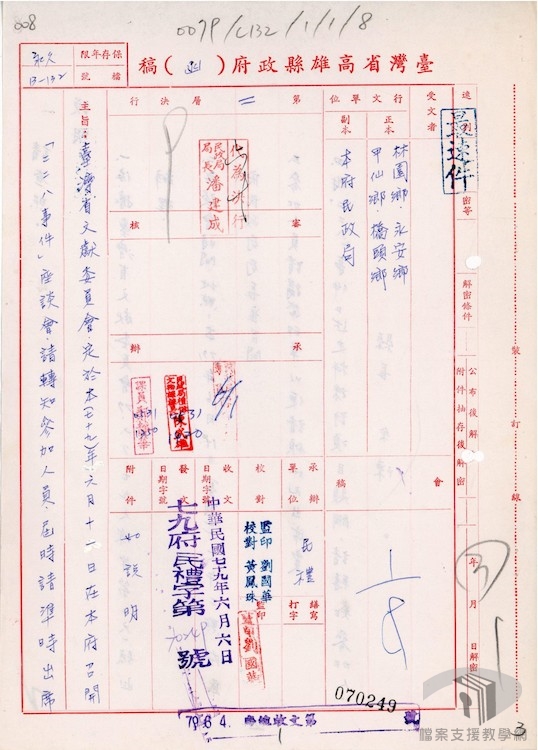 008
0079/C132/1/1/8
臺灣省高雄縣政府(函)稿
保存年限
永久
檔號
13-132
速別
最速件
密等
解密條件
公布後解密
附件抽存後解密
年 月 日解密
裝訂線
受文者
行文單位
正本
林園鄉、永安鄉
甲仙鄉、橋頭鄉
副本
本府民政局
第二層決行
代為決行
民政局
局長潘建成
審核
承辦
課員
會稿
承辦單位
民禮
繕寫
打字
校對
監印
監印 劉國華
校對 黃鳳珠
收文
日期字號
發文
日期字號
中華民國七九年六月六日
七九府民禮字第 號
70249
附件
如說明
主旨:臺灣省文獻委員會定於本(七十九)年六月十一日在本府召開
「二二八事件」座談會,請轉知參加人員,屆時請準時出席
070249
79.6.4.
1
3
檔案支援教學網